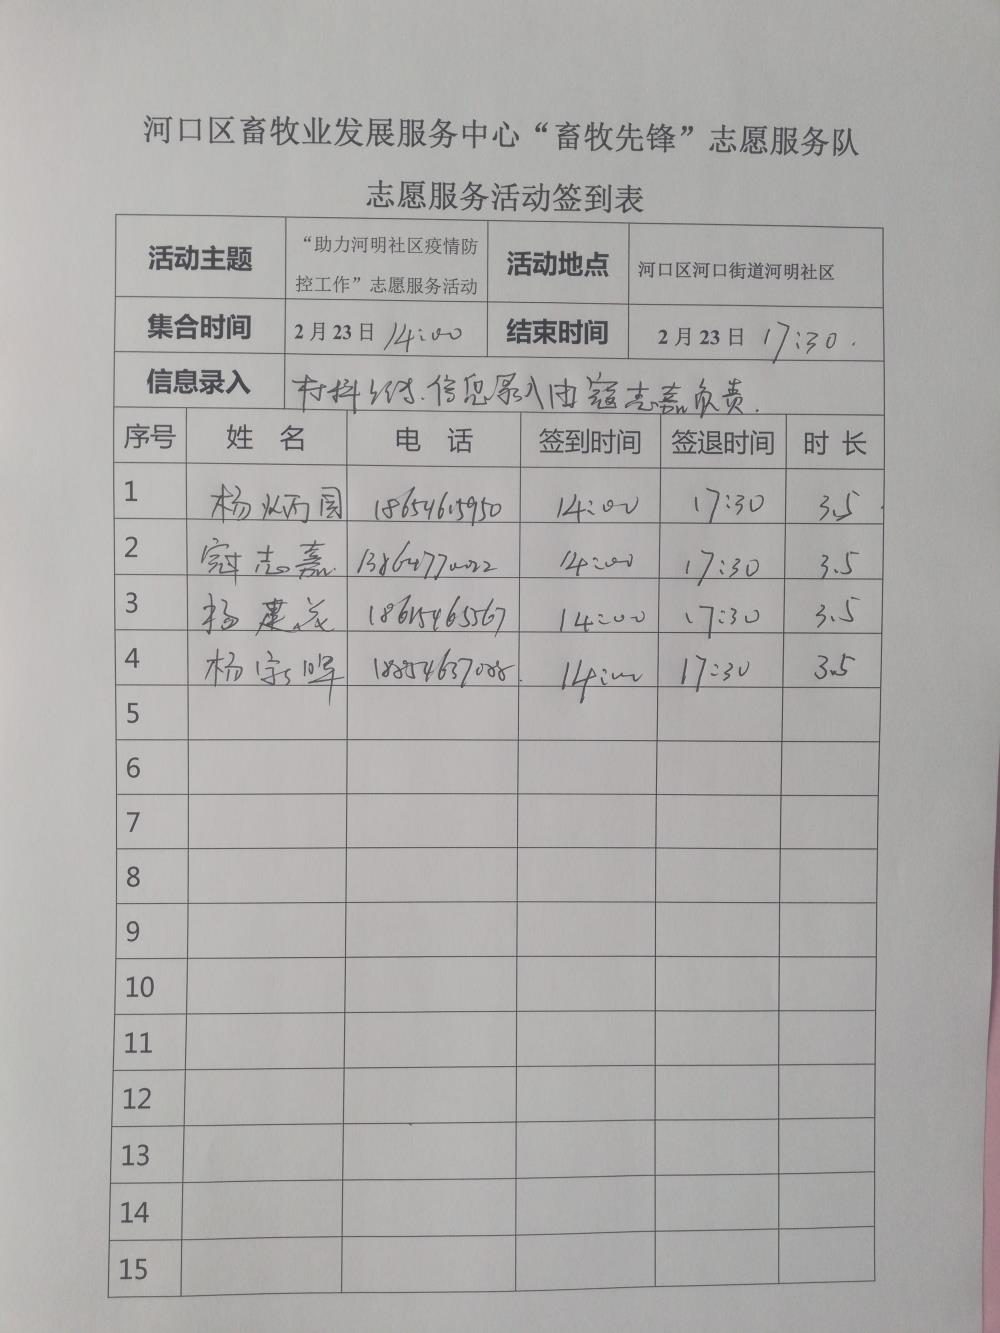 河口区畜牧业发展服务中心“畜牧先锋”志愿服务队
志愿服务活动签到表
活动主题 “助力河明社区疫情防控工作”志愿服务活动 活动地点 河口区河口街道河明社区
集合时间 2月23日 14:00 结束时间 2月23日 17:30.
信息录入 信息录入由寇志嘉负责.
序号 姓 名 电 话 签到时间 签退时间 时 长
1 杨 18654615950 14:00 17:30 3.5
2 寇志嘉 14:00 17:30 3.5
3 杨建 18615465567 14:00 17:30 3.5
4 杨 14:00 17:30 3.5
5
6
7
8
9
10
11
12
13
14
15